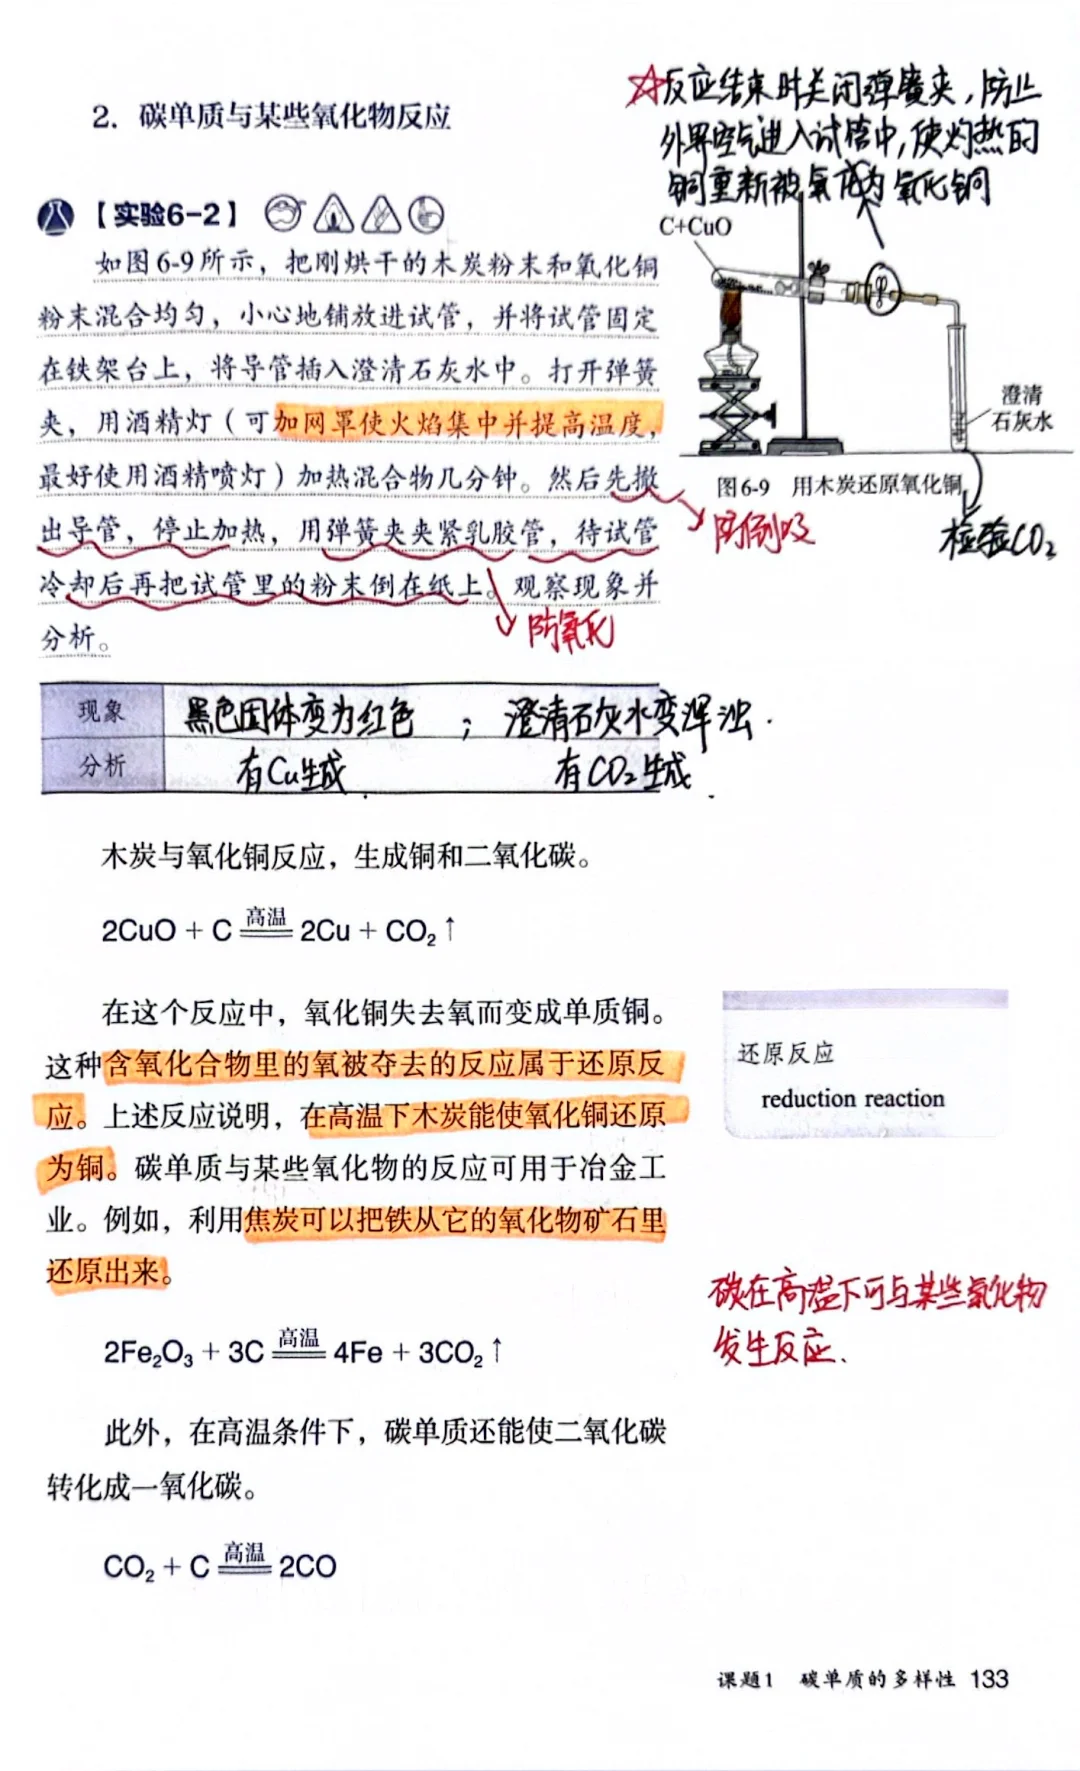 2. 碳单质与某些氧化物反应
☆反应结束时关闭弹簧夹，防止
外界空气进入试管中，使灼热的
铜重新被氧化为氧化铜
【实验6-2】
如图6-9所示，把刚烘干的木炭粉末和氧化铜
粉末混合均匀，小心地铺放进试管，并将试管固定
在铁架台上，将导管插入澄清石灰水中。打开弹簧
夹，用酒精灯（可加网罩使火焰集中并提高温度，
最好使用酒精喷灯）加热混合物几分钟。然后先撤
出导管，停止加热，用弹簧夹夹紧乳胶管，待试管
冷却后再把试管里的粉末倒在纸上。观察现象并
分析。
C+CuO
澄清
石灰水
图6-9 用木炭还原氧化铜
防倒吸
检验CO₂
防氧化
现象 黑色固体变为红色 ； 澄清石灰水变浑浊.
分析 有Cu生成. 有CO₂生成.
木炭与氧化铜反应，生成铜和二氧化碳。
2CuO + C 高温 2Cu + CO₂↑
在这个反应中，氧化铜失去氧而变成单质铜。
这种含氧化合物里的氧被夺去的反应属于还原反
应。上述反应说明，在高温下木炭能使氧化铜还原
为铜。碳单质与某些氧化物的反应可用于冶金工
业。例如，利用焦炭可以把铁从它的氧化物矿石里
还原出来。
还原反应
reduction reaction
碳在高温下可与某些氧化物
发生反应.
2Fe₂O₃ + 3C 高温 4Fe + 3CO₂↑
此外，在高温条件下，碳单质还能使二氧化碳
转化成一氧化碳。
CO₂ + C 高温 2CO
课题1 碳单质的多样性 133